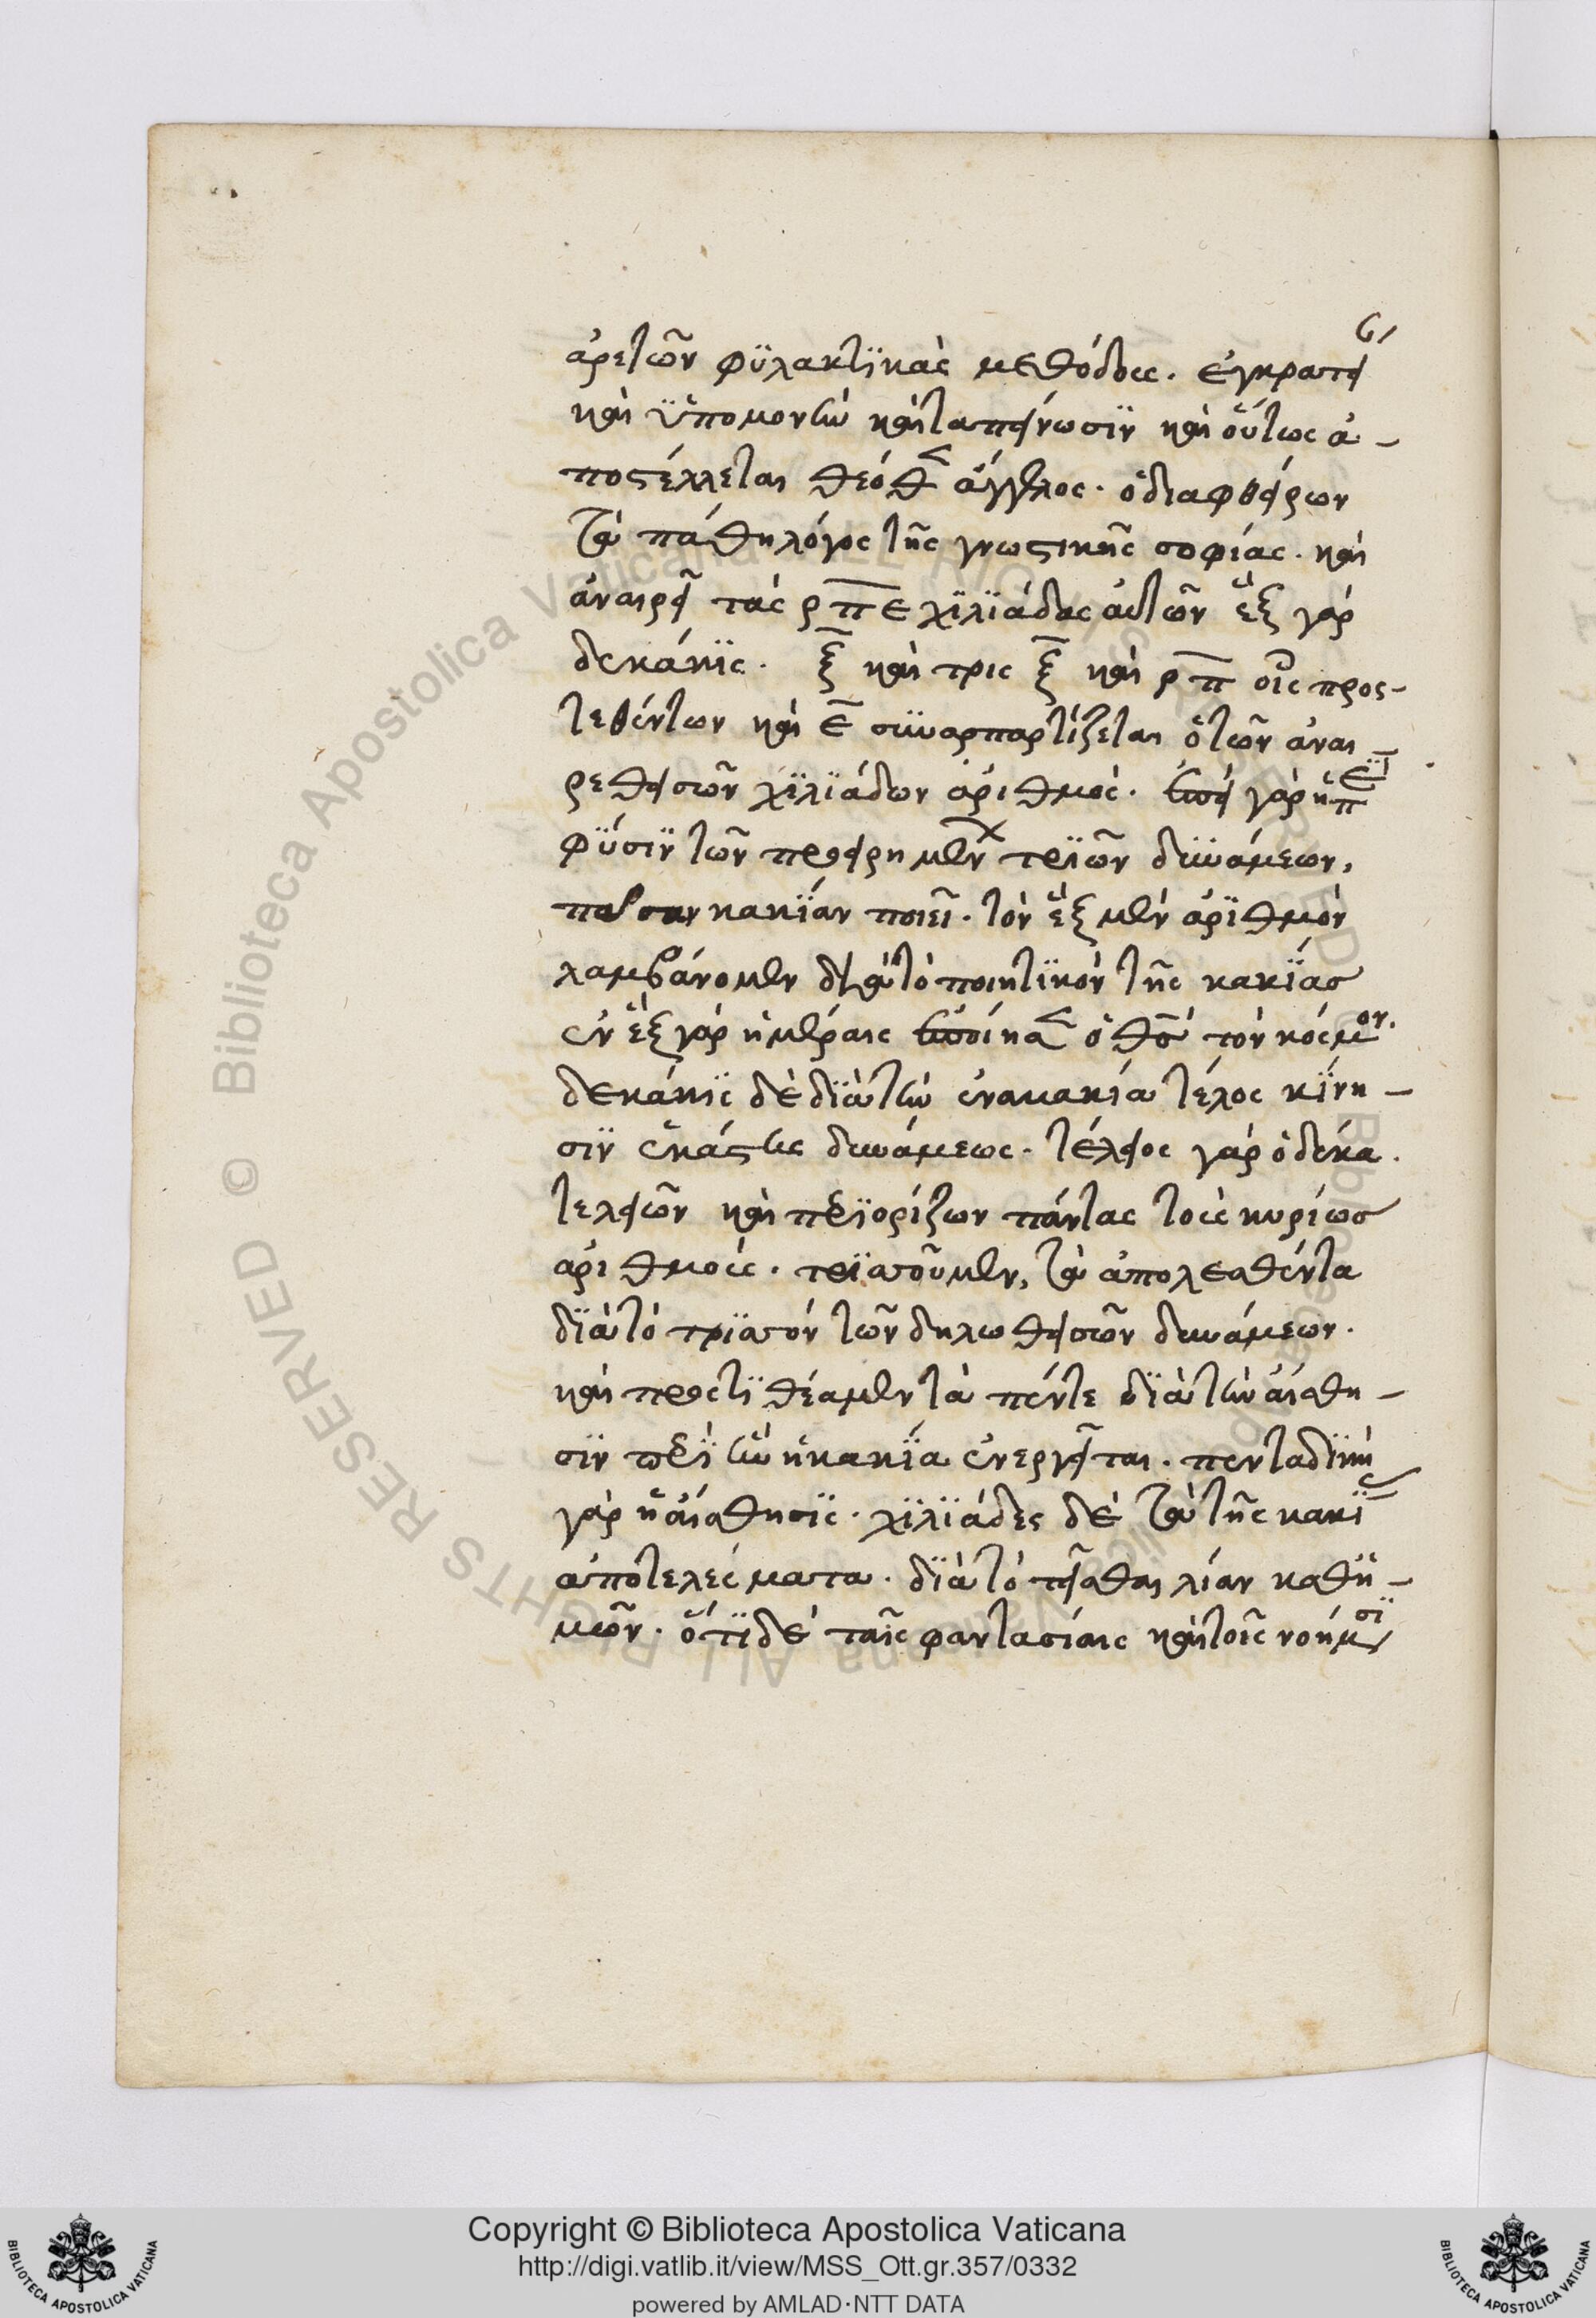 ἀρετῶν φϋλακτϊκὰς μεθόδους. ἐγκρατεί
καὶ ϋπομονὴν καὶ ταπείνωσϊν καὶ οὕτως ἀ-
ποστέλλεται θεόθεν ἄγγελος. ὁ διαφθείρων
τὰ πάθη λόγος τῆς γνωστικῆς σοφίας. καὶ
ἀναιρεῖ τὰς ρπε χϊλϊάδας αὐτῶν ἓξ γὰρ
δεκάκϊς. ξ καὶ τρὶς ξ καὶ ρπ οἷς προσ-
τεθέντων καὶ ε συναπαρτίζεται ὁ τῶν ἀναι-
ρεθεισῶν χϊλϊάδων ἀριθμός. ἐπεὶ γὰρ ἡ ἐπὶ
φϋσϊν τῶν προειρημένων τρϊῶν δυνάμεων,
πᾶσαν κακϊαν ποιεῖ. τὸν ἓξ μὲν ἀρϊθμὸν
λαμβάνομεν διὰ τὸ ποιητϊκὸν τῆς κακϊας
ἐν ἓξ γὰρ ἡμέραις ἐποίησεν ὁ θεὸς τὸν κόσμον.
δεκάκϊς δὲ δϊὰ τὴν ἐνακακία τέλος κϊνη-
σϊν ἑκάστης δυνάμεως. τέλειος γὰρ ὁ δέκα.
τελειῶν καὶ περϊορίζων πάντας τοὺς κυρίως
ἀριθμούς. τρϊασοῦμεν, τὰ ἀπολεσθέντα
δϊὰ τὸ τρϊασὸν τῶν δηλωθεισῶν δυνάμεων.
καὶ προστϊθέαμεν τὰ πέντε δϊὰ τὴν αἴσθη-
σϊν περϊ ἣν ἡ κακϊα ἐνεργεῖται. πενταδϊκὴ
γὰρ ἡ αἴσθησϊς. χϊλϊάδες δὲ τὰ τῆς κακϊας
ἀποτελέσματα. δϊὰ τὸ πεῖσθαι λίαν καθ' ἡ-
μῶν. ὅτϊ δὲ ταῖς φαντασίαις καὶ τοῖς νοήμασϊ
Copyright © Biblioteca Apostolica Vaticana
http://digi.vatlib.it/view/MSS_Ott.gr.357/0332
powered by AMLAD·NTT DATA